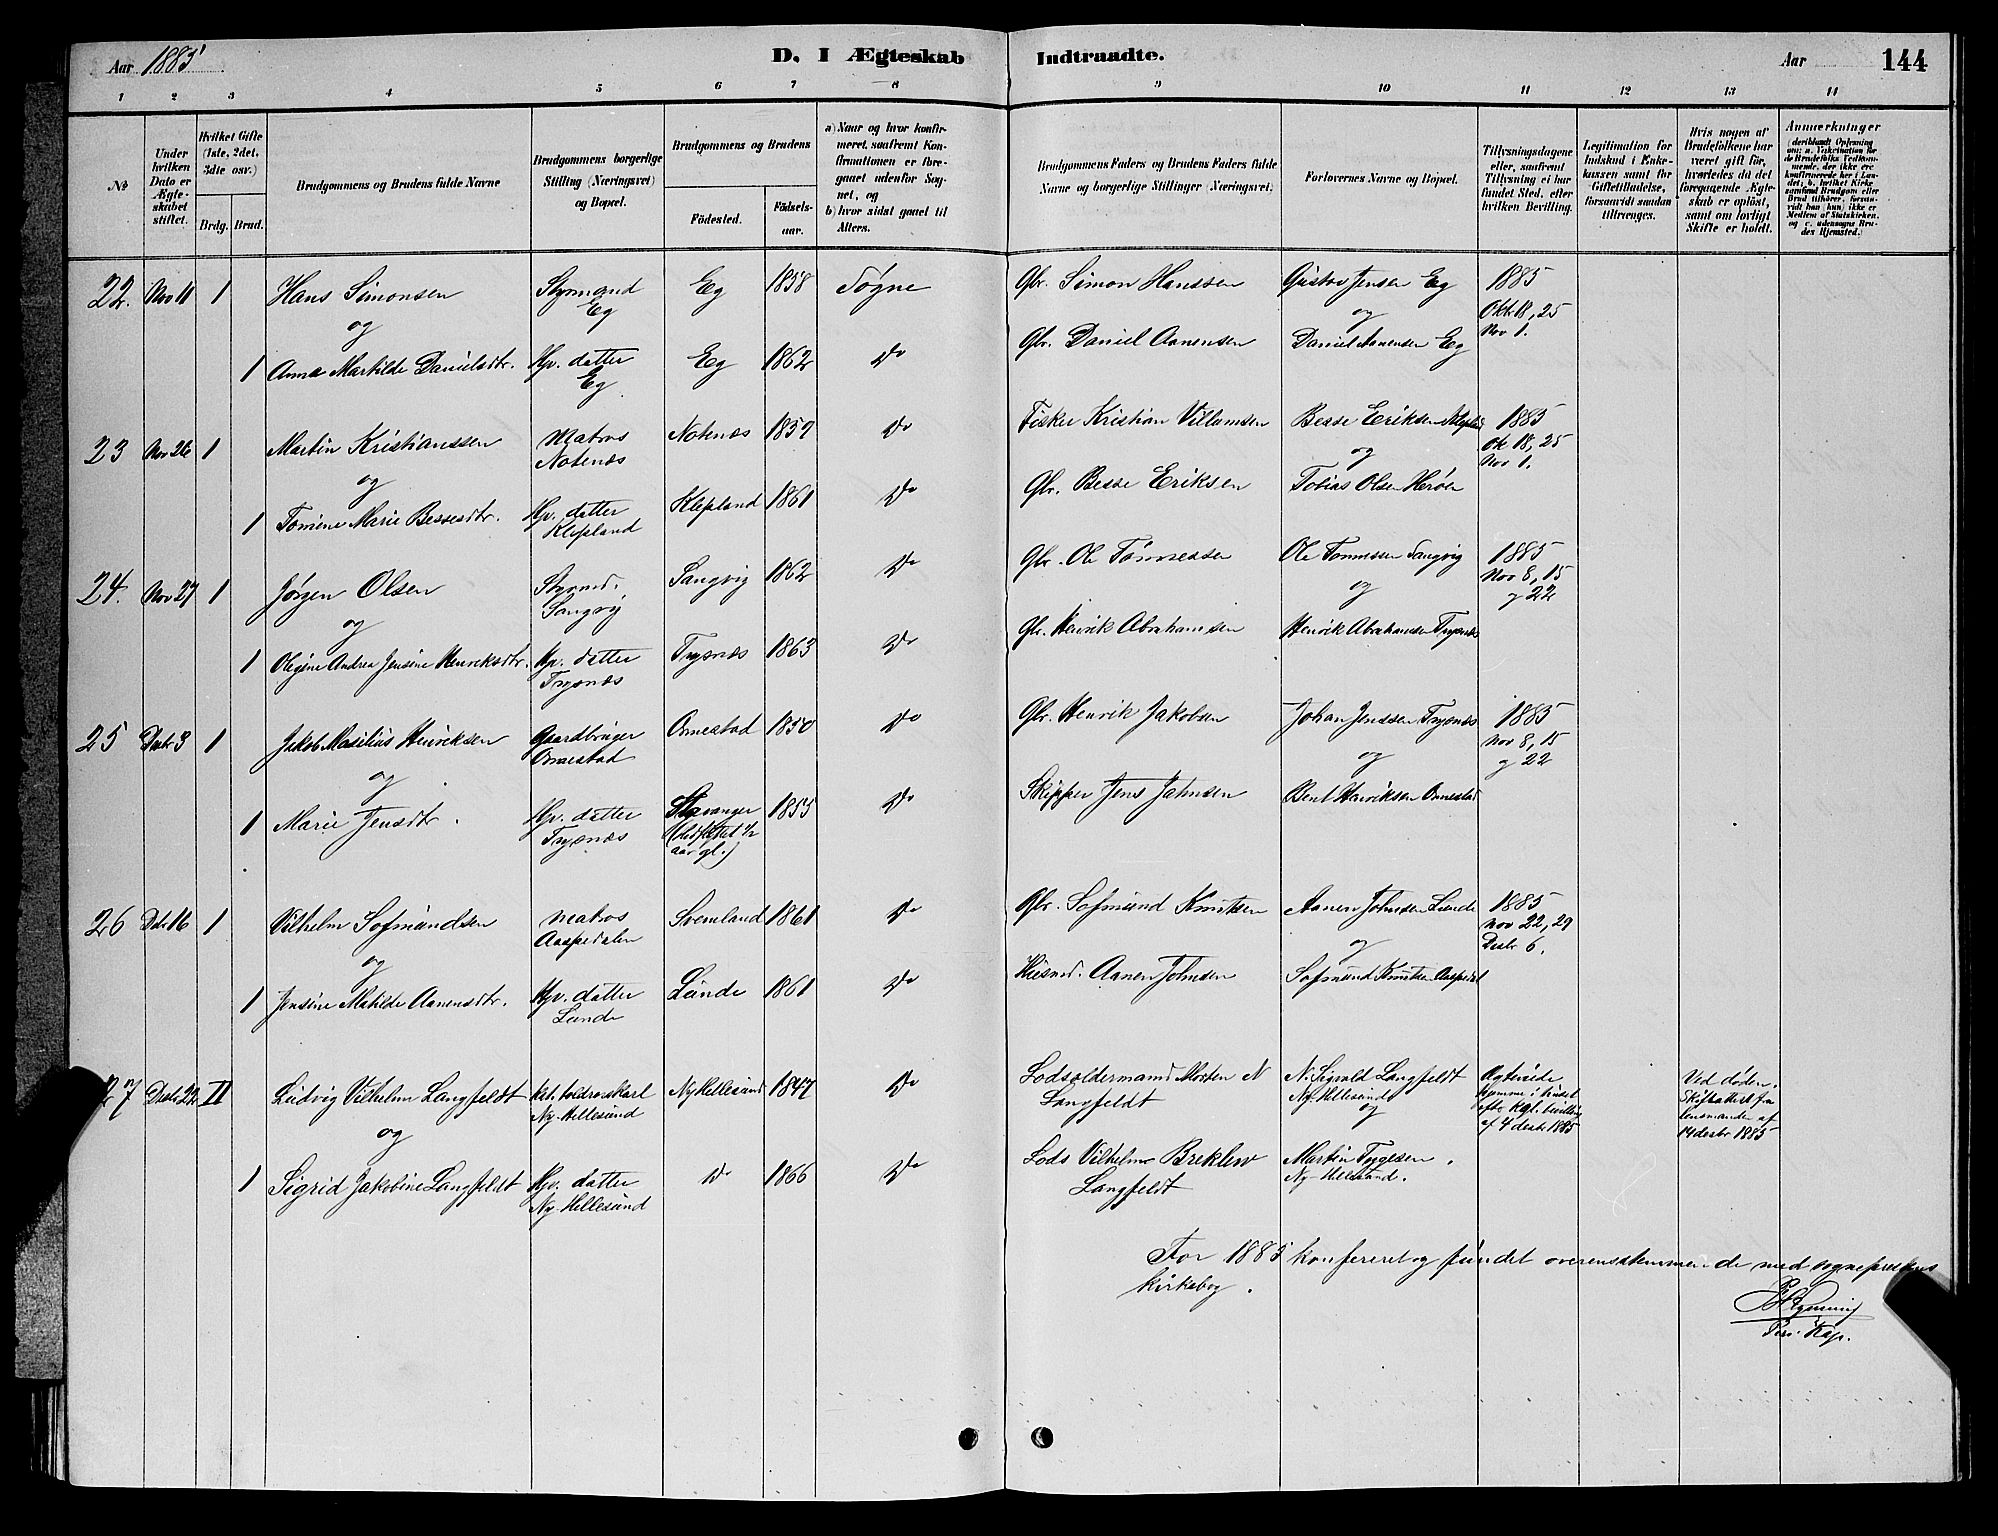 Aar 1885
D. I Ægteskab Indtraadte.
Aar 144
1 2 3 4 5 6 7 8 9 10 11 12 13 14
No
Under hvilken Dato er Ægteskabet stiftet.
Hvilket Gifte (1ste, 2det, 3die osv.)
Brdg. Brud.
Brudgommens og Brudens fulde Navne
Brudgommens borgerlige Stilling (Næringsvei) og Bopæl.
Brudgommens og Brudens
Födested. Födselsaar.
a) Naar og hvor konfirmeret, saafremt Konfirmationen er foregaaet udenfor Sognet, og
b) hvor sidst gaaet til Alters.
Brudgommens Faders og Brudens Faders fulde Navne og borgerlige Stillinger (Næringsvei).
Forlovernes Navne og Bopæl.
Tillysningsdagene eller, saafremt Tillysning ei har fundet Sted, efter hvilken Bevilling.
Legitimation for Indskud i Enkekassen samt for Giftetilladelse, forsaavidt saadan tiltrænges.
Hvis nogen af Brudefolkene har været gift för, hvorledes da det foregaaende Ægteskab er oplöst, samt om lovligt Skifte er holdt.
Anmærkninger
22. Nov 11 1 Hans Simonsen Styrmand Eg Eg 1858 Søgne Gbr. Simon Hanssen Gustav Jensen Eg 1885
og og Oktbr 18, 25
Nov 1.
1 Anna Martilde Danielsdtr. Hp. datter Eg Eg 1862 Do Gbr. Daniel Aanensen Daniel Aanensen Eg
23 Nov 26 1 Martin Kristianssen Matros Notenæs Notenæs 1859 Do Fisker Kristian Villamsen Besse Eriksen Klepland 1885
og og Ok 18, 25
Nov 1.
1 Tomine Marie Bessesdtr. Hp. datter Klepland Klepland 1861 Do Gbr. Besse Eriksen Tobias Olsen Herøen
24. Nov 27 1 Jørgen Olsen Styrmd. Sangvig Sangvig 1862 Do Gbr. Ole Tønnessen Ole Tønnessen Sangvig 1885
og og Nov 8, 15
og 22
1 Oligine Andrea Jensine Henriksdtr. Hp. datter Trysnæs Trysnæs 1863 Do Gbr. Henrik Abrahamsen Henrik Abrahamsen Trysnæs
25 Desbr 3 1 Jakob Masilius Henriksen Gaardbruger Ormestad Ormestad 1850 Do Gbr. Henrik Jakobsen Johan Jenssen Trysnæs 1885
og og Nov 8, 15
og 22
1 Marie Jensdtr. Hp. datter Trysnæs Stavanger aar gl.) 1855 Do Skipper Jens Jahnsen Bent Henriksen Ormestad
26 Dsbr 16 1 Vilhelm Sofmundsen Matros Aaspedalen Svenland 1861 Do Gbr. Sofmund Knutsen Aanen Johnsen Lunde 1885
og og Nov 22, 29
Desbr 6.
1 Jensine Matilde Aanensdtr. Hp. datter Lunde Lunde 1861 Do Husmd. Aanen Johnsen Sofmund Knutsen Aaspedal
27 Desbr 22 II Ludvig Vilhelm Langfeldt Ny-Hellesund Ny Hellesund 1847 Do Lodsoldermand Morten N Langfeldt N. Sigvald Langfeldt Ny-Hellesund
og og hjemme i huset efter kgl. bevilling af 4 desbr 1885
Ved døden. Skifteattest fra lensmanden af 14 desbr 1885
1 Sigrid Jakobine Langfeldt Hp. datter Ny-Hellesund Do 1866 Do Lods Vilhelm Breklew Langfeldt Martin Tygesen. Ny-Hellesund.
For 1885 konfereret og fundet overensstemmende med sogneprestens
kirkebog.
Pers. Kap.